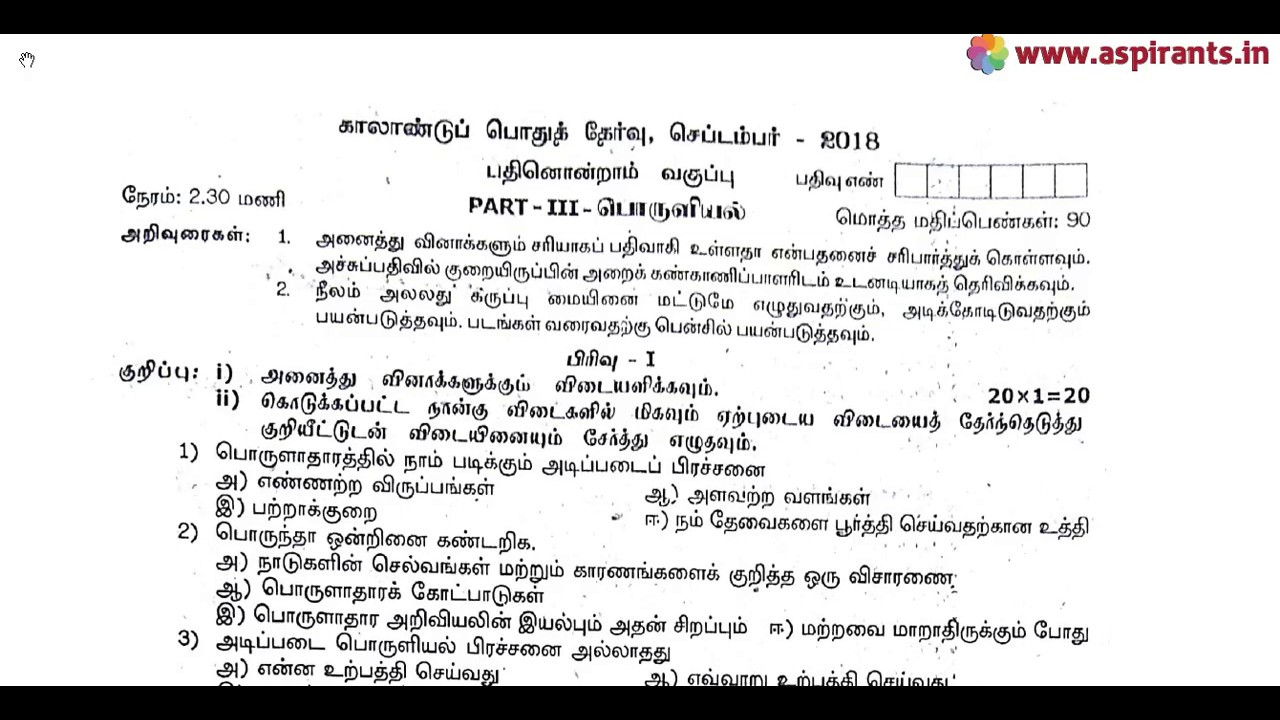 www.aspirants.in
காலாண்டுப் பொதுத் தேர்வு, செப்டம்பர் - 2018
பதினொன்றாம் வகுப்பு
பதிவு எண்
நேரம்: 2.30 மணி
PART - III - பொருளியல்
மொத்த மதிப்பெண்கள்: 90
அறிவுரைகள்: 1. அனைத்து வினாக்களும் சரியாகப் பதிவாகி உள்ளதா என்பதனைச் சரிபார்த்துக் கொள்ளவும்.
அச்சுப்பதிவில் குறையிருப்பின் அறைக் கண்காணிப்பாளரிடம் உடனடியாகத் தெரிவிக்கவும்.
2. நீலம் அல்லது கருப்பு மையினை மட்டுமே எழுதுவதற்கும், அடிக்கோடிடுவதற்கும்
பயன்படுத்தவும். படங்கள் வரைவதற்கு பென்சில் பயன்படுத்தவும்.
பிரிவு - I
குறிப்பு: i) அனைத்து வினாக்களுக்கும் விடையளிக்கவும். 20×1=20
ii) கொடுக்கப்பட்ட நான்கு விடைகளில் மிகவும் ஏற்புடைய விடையைத் தேர்ந்தெடுத்து
குறியீட்டுடன் விடையினையும் சேர்த்து எழுதவும்.
1) பொருளாதாரத்தில் நாம் படிக்கும் அடிப்படைப் பிரச்சனை
அ) எண்ணற்ற விருப்பங்கள் ஆ) அளவற்ற வளங்கள்
இ) பற்றாக்குறை ஈ) நம் தேவைகளை பூர்த்தி செய்வதற்கான உத்தி
2) பொருந்தா ஒன்றினை கண்டறிக.
அ) நாடுகளின் செல்வங்கள் மற்றும் காரணங்களைக் குறித்த ஒரு விசாரணை
ஆ) பொருளாதாரக் கோட்பாடுகள்
இ) பொருளாதார அறிவியலின் இயல்பும் அதன் சிறப்பும் ஈ) மற்றவை மாறாதிருக்கும் போது
3) அடிப்படை பொருளியல் பிரச்சனை அல்லாதது
அ) என்ன உற்பத்தி செய்வது ஆ) எவ்வாறு உற்பத்தி செய்வது